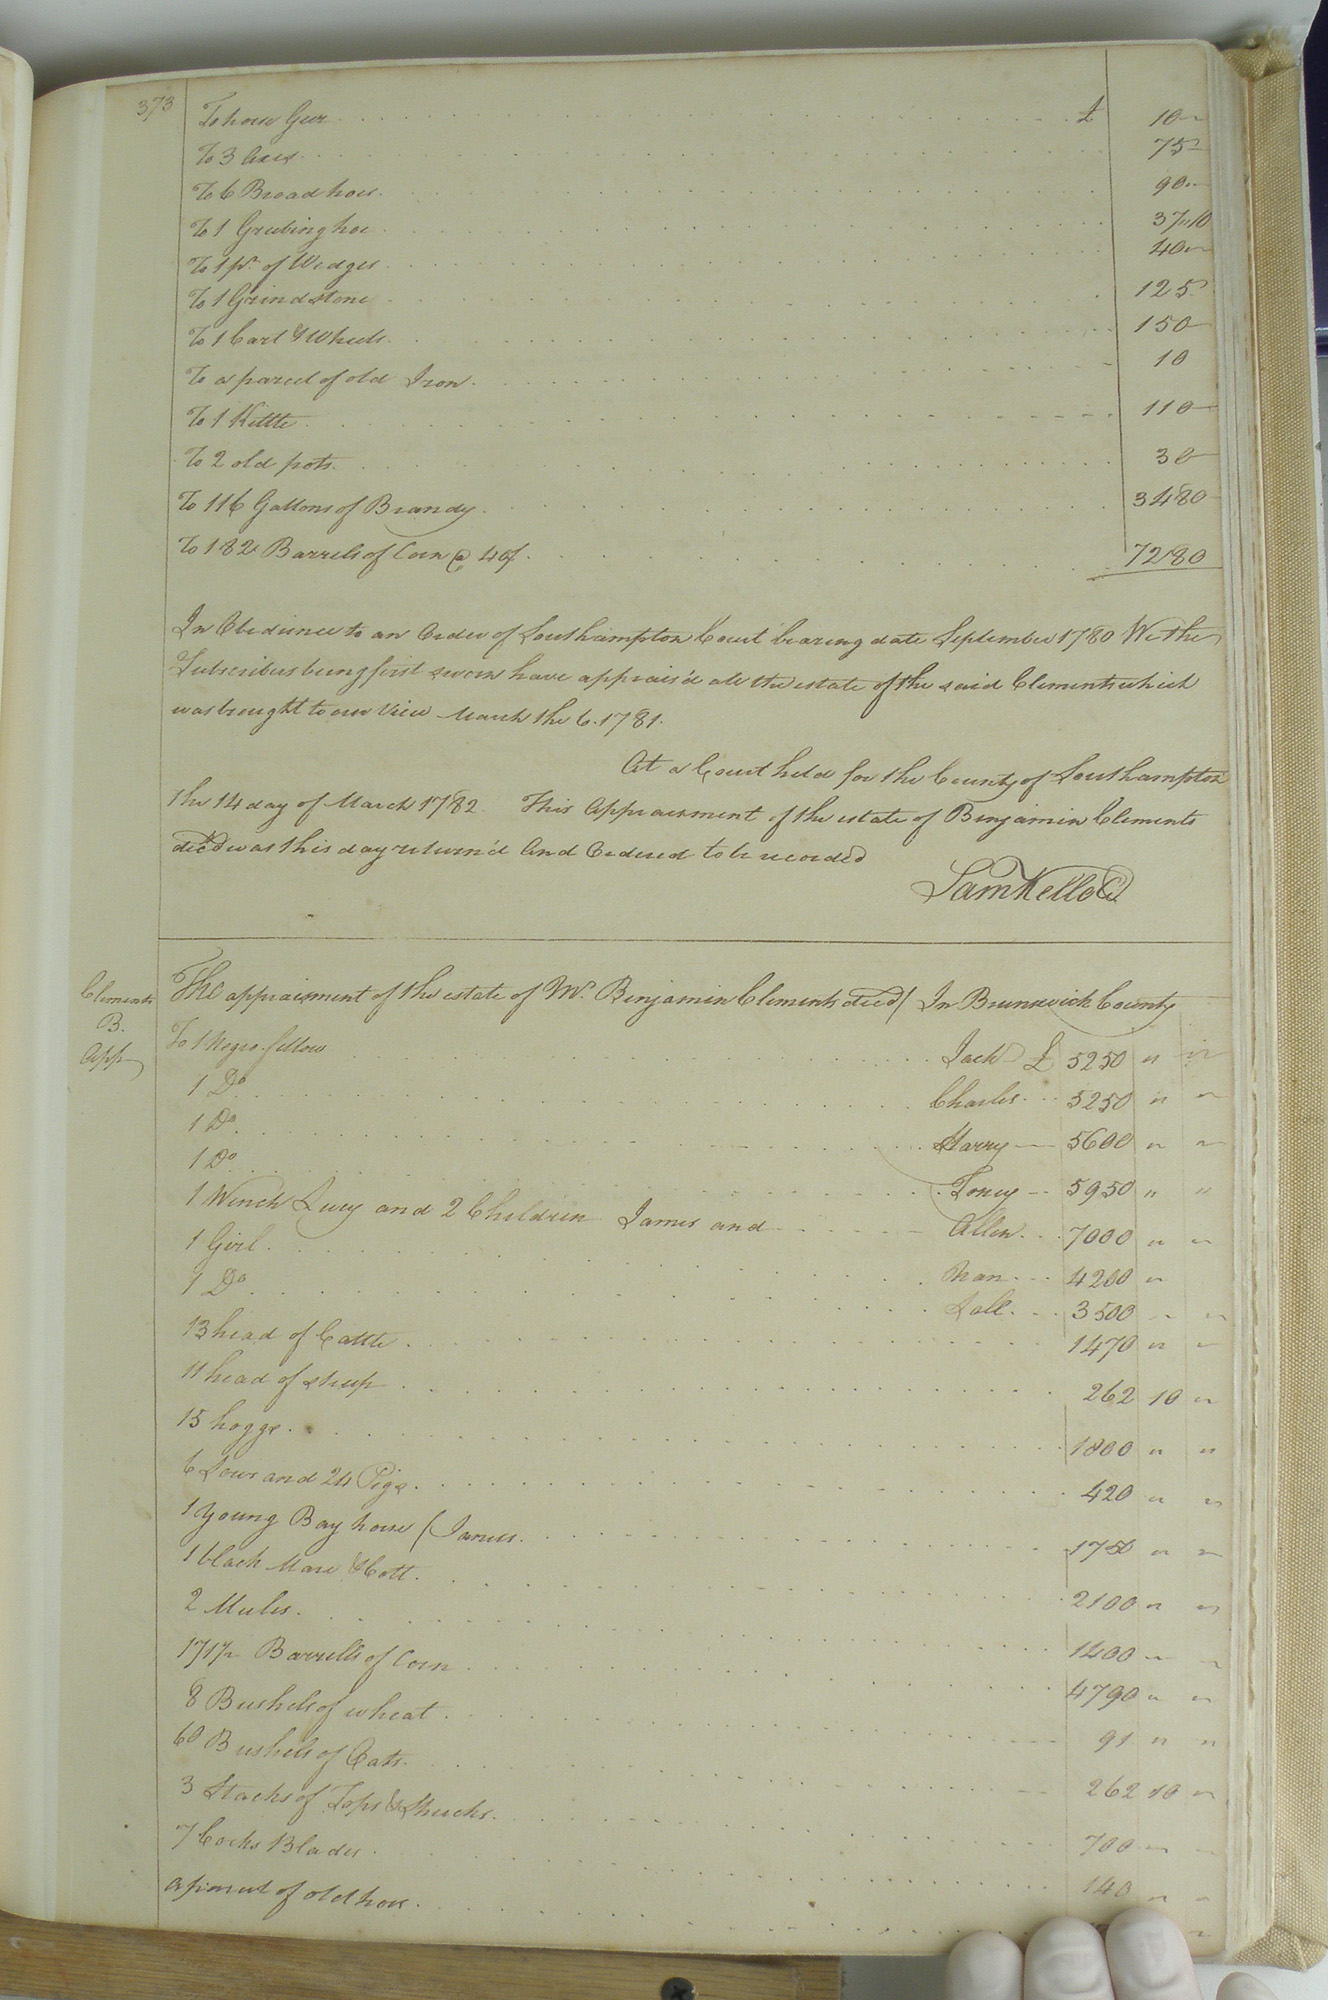 373
To horse Geer £ 10 "
To 3 Axes 75 "
To 6 Broad hoes 90 "
To 1 Grubing hoe 37 " 10
To 1 pr. of Wedges 40 "
To 1 Grindstone 125
To 1 Cart & Wheels 150
To a parcel of old Iron 10
To 1 Kittle 110
To 2 old pots 30
To 116 Gallons of Brandy 3480
To 182 Barrels of Corn @ 40£ 7280
In Obedience to an Order of Southampton Court bearing date September 1780 We the
Subscribers being first sworn have apprais'd all the estate of the said Clements which
was brought to our View March the 6. 1781.
At a Court held for the County of Southampton
the 14 day of March 1782 This Appraisment of the estate of Benjamin Clements
dec'd was this day return'd And Ordered to be recorded
Sam Kello Cl
Clements
B.
App
The appraisment of the estate of Mr. Benjamin Clements decd / In Brunswick County
To 1 Negro fellow Jack £ 5250 " "
1 Do Charles 5250 " "
1 Do Harry 5600 " "
1 Do Toney 5950 " "
1 Wench Lucy and 2 Children James and Allen 7000 " "
1 Girl Nan 4200 "
1 Do Sall 3500 " "
13 head of Cattle 1470 " "
11 head of sheep 262 10 "
15 hoggs 1800 " "
6 Sows and 24 Pigs 420 " "
1 young Bay horse (James 1750 " "
1 black Mare & Colt 2100 " "
2 Mules 1400 " "
171 1/2 Barrells of Corn 4790 " "
8 Bushels of wheat 91 " "
60 Bushels of Oats 262 10 "
3 Stacks of Tops & Shucks 700 "
7 Cocks Blades 140 " "
a parcel of old hoes "